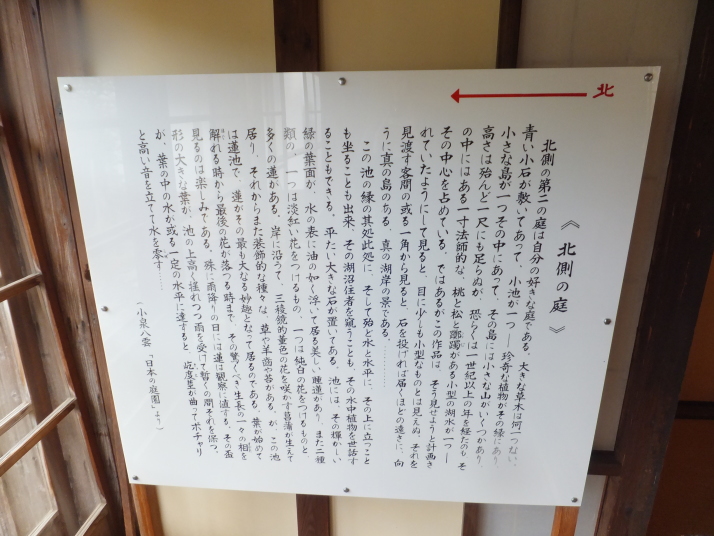 北
《 北側の庭 》
北側の第二の庭は自分の好きな庭である、大きな草木は何一つない、
青い小石が敷いてあって、小池が一つ―珍奇な植物がその縁にあり、
小さな島が一つその中にあって、その島には小さな山がいくつかあり、
高さは殆んど一尺にも足らぬが、恐らくは一世紀以上の年を経たのも、そ
の中にはある一寸法師的な、桃と松と躑躅がある小型の湖水が一つ―
その中心を占めている。ではあるがこの作品は、そう見せようと計画さ
れていたようにして見ると、目に少しも小型なものとは見えぬ、それを
見渡す客間の或る一角から見ると、石を投げれば届くほどの遠さに、向
うに真の島のある、真の湖岸の景である。………
この池の縁の其処此処に、そして殆ど水と水平に、その上に立つこと
も坐ることも出来、その湖沼住者を窺うことも、その水中植物を世話す
ることもできる、平たい大きな石が置いてある。池には、その輝かしい
緑の葉面が、水の表に油の如く浮いて居る美しい睡蓮があり、また二種
類の、一つは淡紅い花をつけるもの、一つは純白の花をつけるものと
多くの蓮がある。岸に沿うて、三稜鏡的菫色の花を咲かす菖蒲が生えて
居り、それからまた装飾的な種々な、草や羊歯や苔がある。が、この池
は蓮池で、蓮がその最も大なる妙趣となって居るのである。葉が始めて
解れる時から最後の花が落つる時まで、その驚くべき生長の一々の相を
見るのは楽しみである。殊に雨降りの日には蓮は観察に値する。その盃
形の大きな葉が、池の上高く揺れつつ雨を受けて暫くの間それを保つ、
が、葉の中の水が或る一定の水平に達すると、屹度茎が曲ってボチャリ
と高い音を立てて水を零す……
(小泉八雲 「日本の庭園」より)